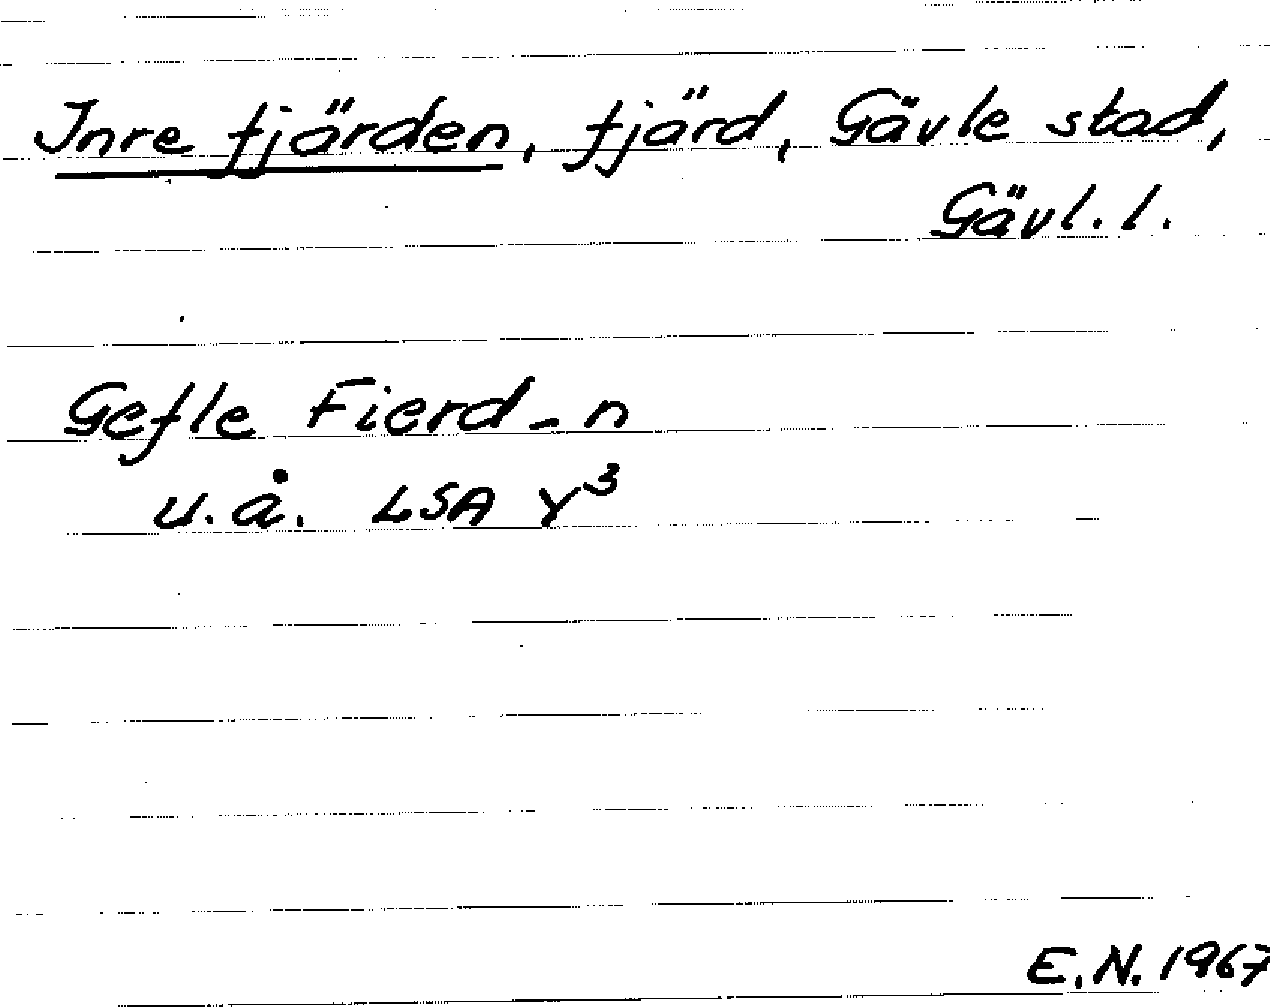 Inre fjärden, fjärd, Gävle stad,
Gävl. l.
Gefle Fierd-n
u.å. LSA Y³
E.N. 1967